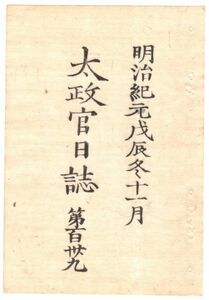 明治紀元戊辰冬十一月
太政官日誌 第百卅九